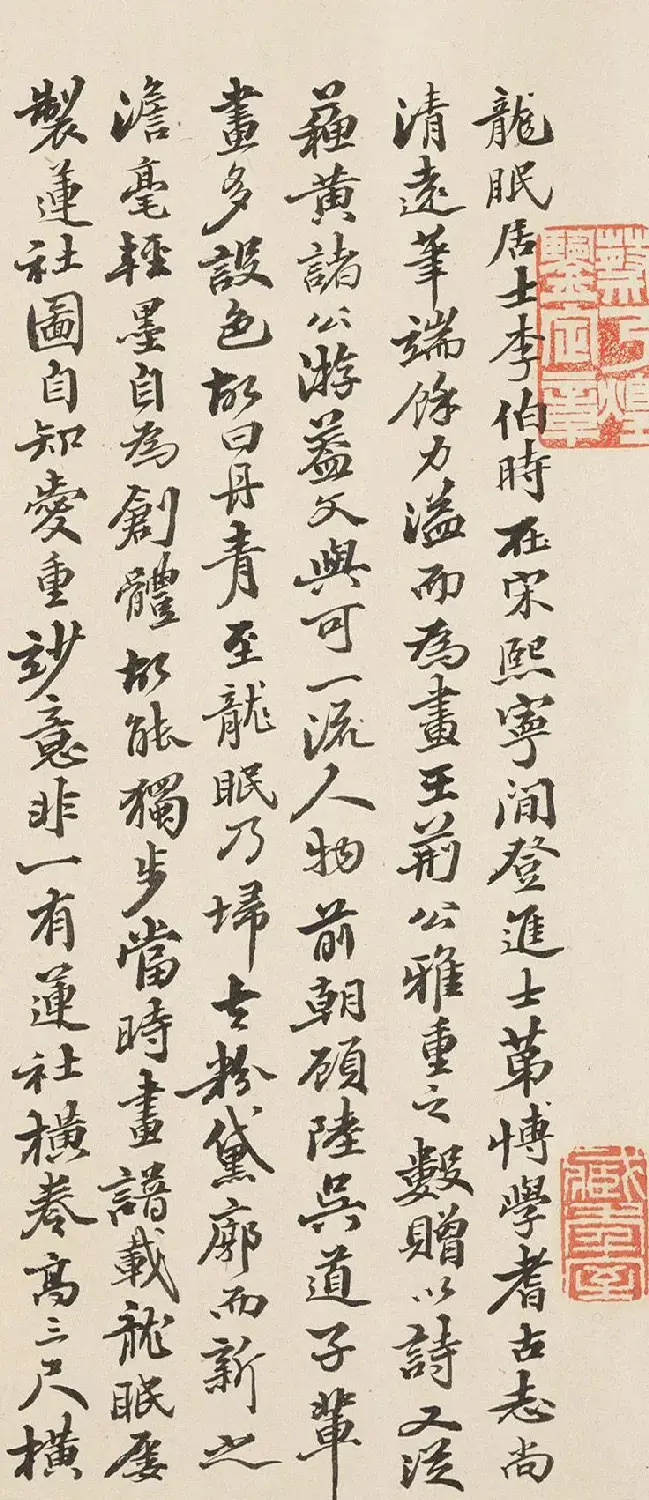 龍眠居士李伯時在宋熙寧間登進士第博學耆古志尚
清遠筆端餘力溢而為畫王荊公雅重之數贈以詩又從
蘓黄諸公游葢文與可一流人物前朝顧陸吳道子輩
畫多設色故曰丹青至龍眠乃埽去粉黛廓而新之
澹毫輕墨自為創體故能獨步當時畫譜載龍眠屢
製蓮社圖自知愛重玅意非一有蓮社横卷高三尺横
蔡乃煌鑒定章